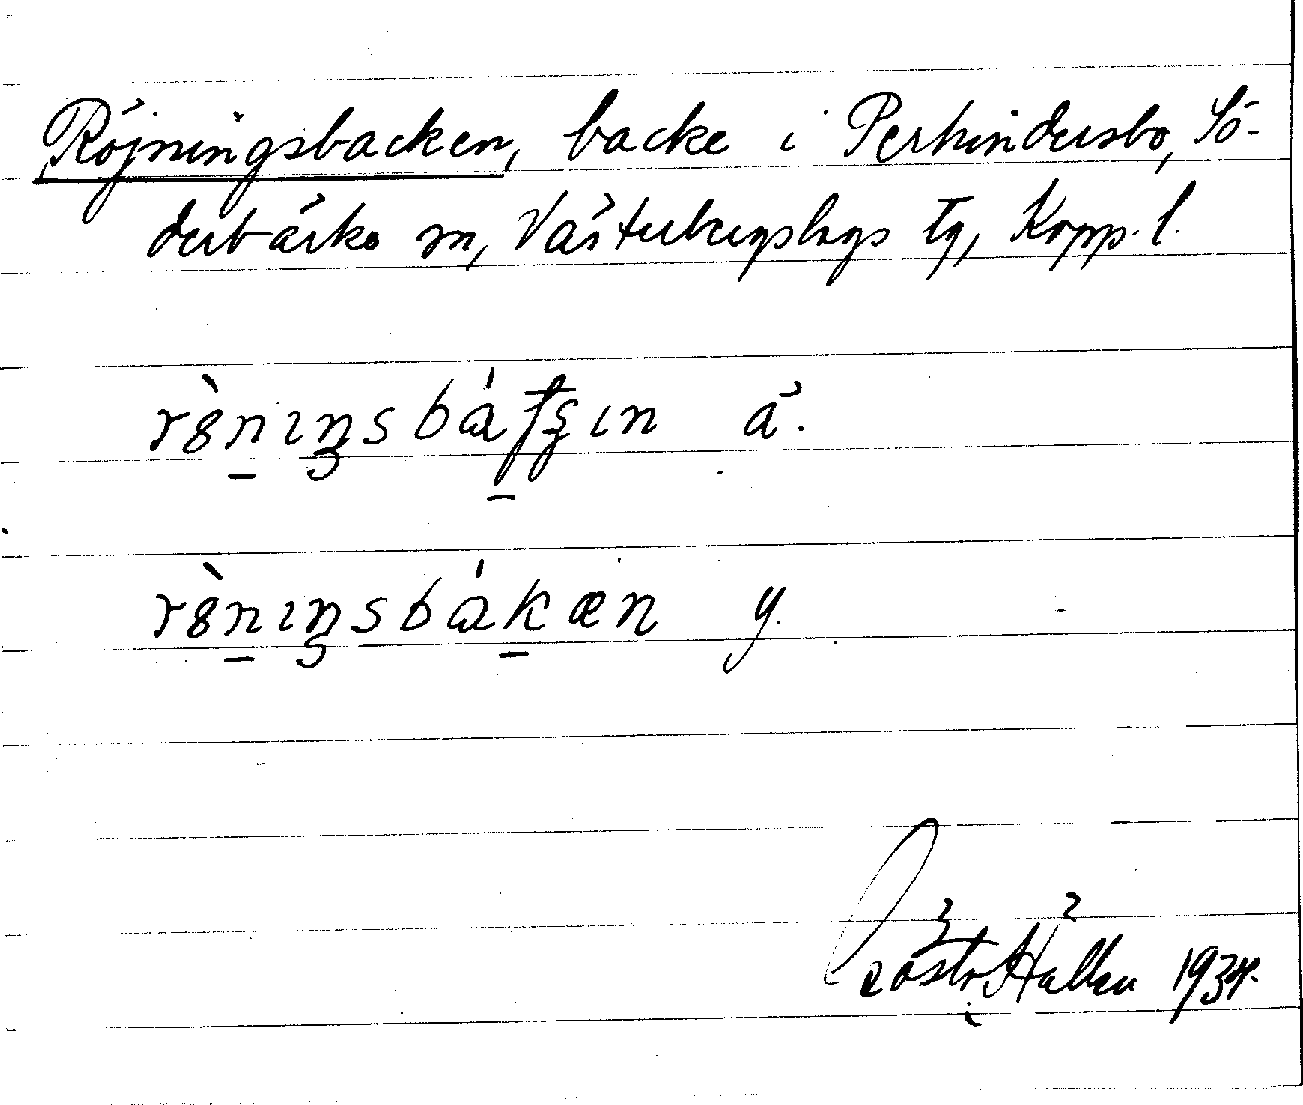 Röjningsbacken, backe i Perhindersbo, Sö-
derbärke sn, Västerbergslags tg, Kopp. l.
rö̀niŋsbátɕin ä.
rö̀niŋsbákæn y.
Gösta Hallen 1934.